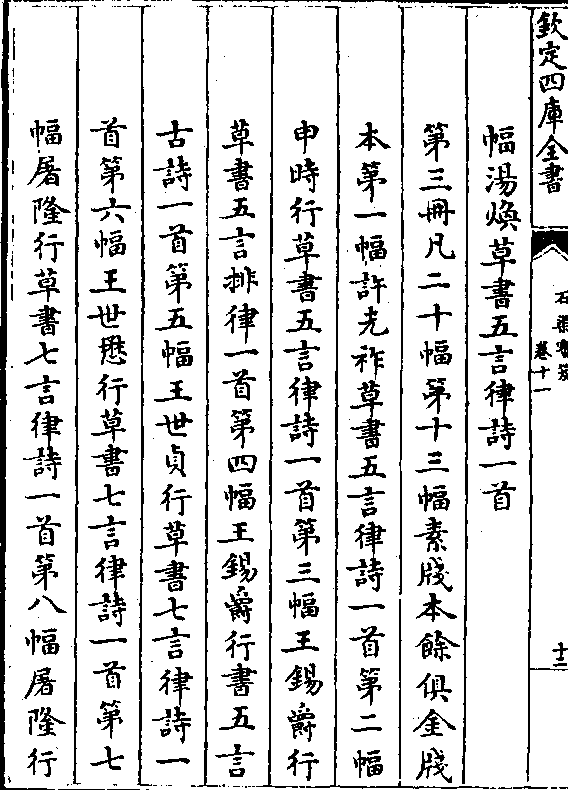 欽定四庫全書
卷十一
十二
幅湯煥草書五言律詩一首
第三冊凡二十幅第十三幅素牋本餘俱金牋
本第一幅許光祚草書五言律詩一首第二幅
申時行草書五言律詩一首第三幅王錫爵行
草書五言排律一首第四幅王錫爵行書五言
古詩一首第五幅王世貞行草書七言律詩一
首第六幅王世懋行草書七言律詩一首第七
幅屠隆行草書七言律詩一首第八幅屠隆行